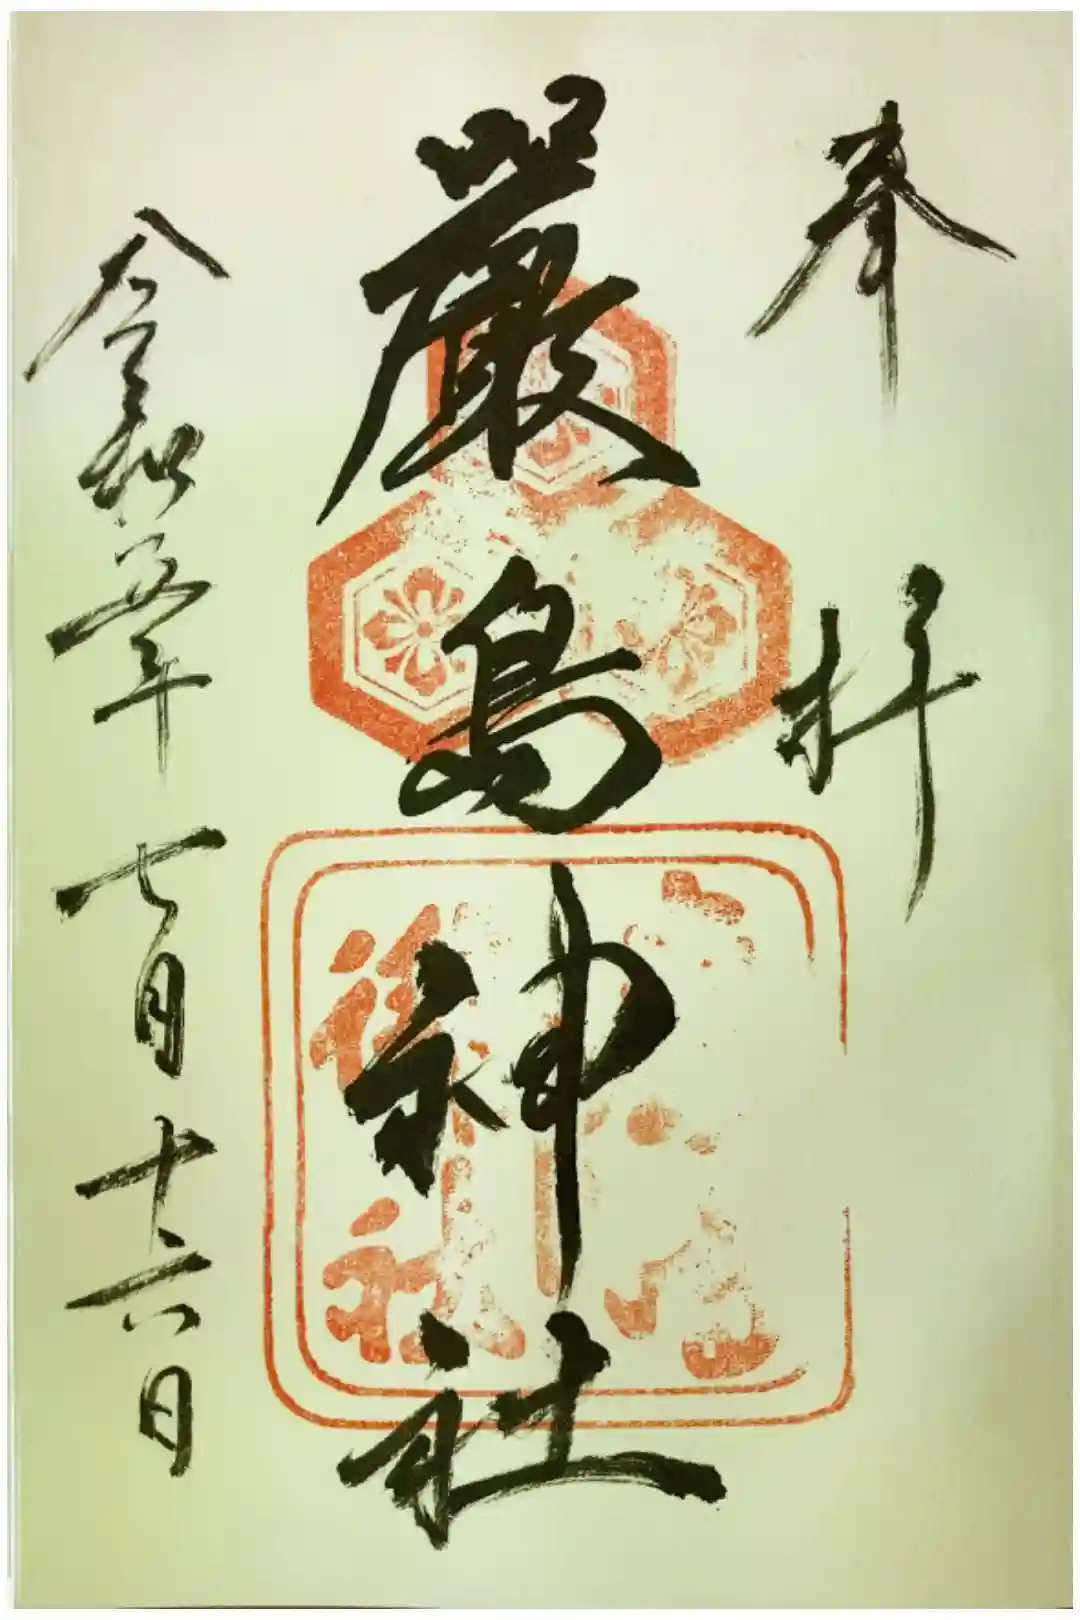 奉拝
厳島神社
令和五年七月十六日